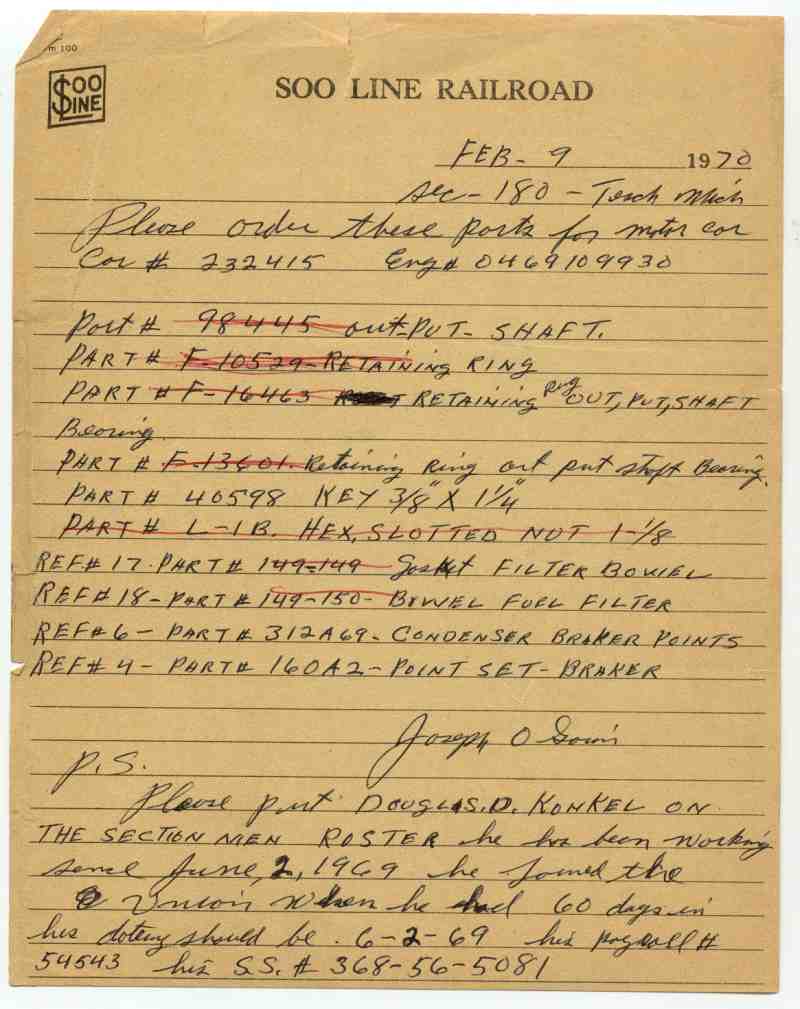 m 100
SOO LINE
SOO LINE RAILROAD
FEB - 9 1970
sec - 180 - Mich
Please order these parts for motor car
Car # 232415 Eng # 0469109930
Part # 98445 out-PUT- SHAFT.
PART # F-10529-RETAINING RING
PART # F-16463 RETAINING ring OUT, PUT, SHAFT
Bearing.
PART # F-13601-Retaining Ring out put shaft Bearing.
PART # 40598 KEY 3/8" X 1 1/4"
PART # L-1B. HEX, SLOTTED NUT 1-1/8
REF# 17-PART # 149-149 Gasket FILTER BOWEL
REF# 18-PART # 149-150- BOWEL FUEL FILTER
REF# 6 - PART # 312A69- CONDENSER BRAKER POINTS
REF# 4 - PART # 160A2 - POINT SET - BRAKER
Joseph O
P.S.
Please put DOUGLAS. D. KONKEL ON
THE SECTION MEN ROSTER he has been working
sence June, 2, 1969 he joined the
Union When he had 60 days in
his dateing should be. 6-2-69 his payroll #
54543 his S.S. # 368-56-5081